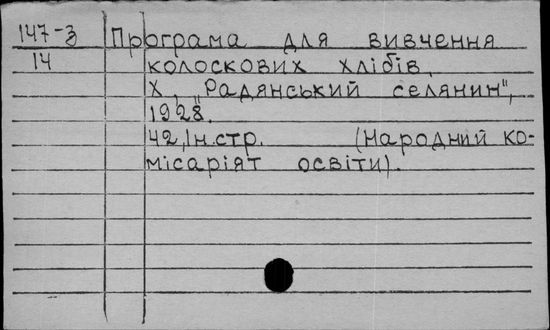 147-з Програма для вивчення
14 колоскових хлібів.
Х, „Радянський селянин",
1928.
42,Ін.стр. (Народний ко-
місаріят освіти).